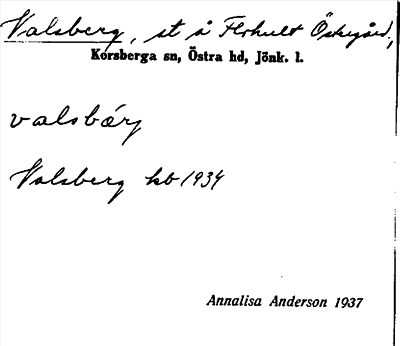 Valsberg, st å Flohult Östergård,
Korsberga sn, Östra hd, Jönk. l.
valsbärj
Valsberg kb 1934
Annalisa Anderson 1937